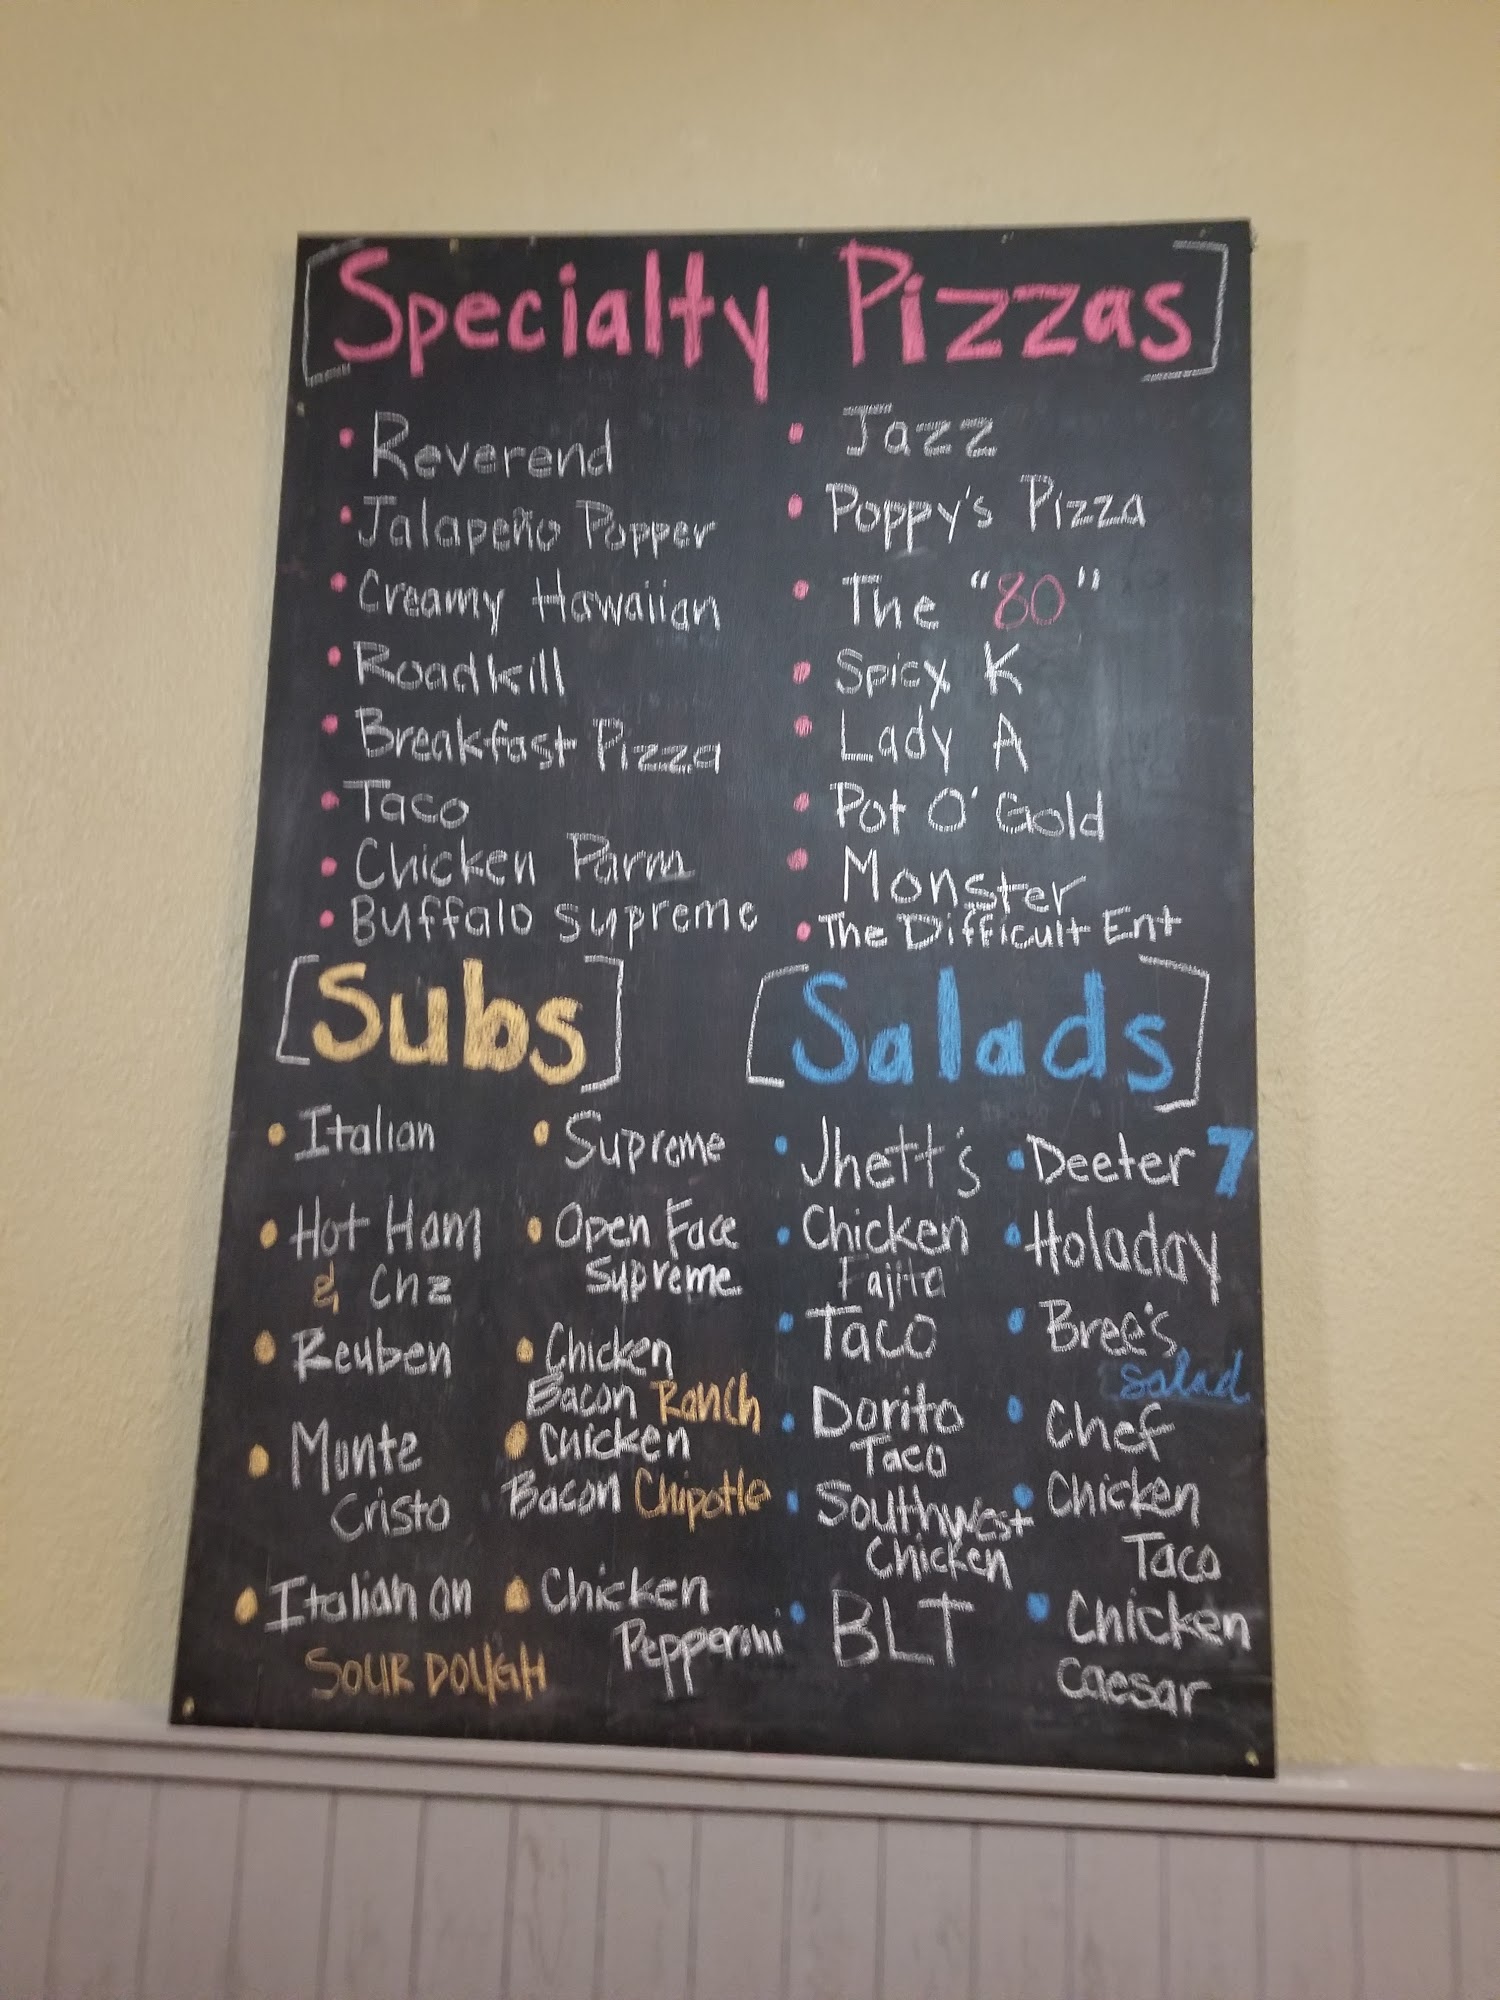 Specialty Pizzas
Reverend
Jalapeño Popper
Creamy Hawaiian
Roadkill
Breakfast Pizza
Taco
Chicken Parm
Buffalo Supreme
Jazz
Poppy's Pizza
The "80"
Spicy K
Lady A
Pot O' Gold
Monster
The Difficult Ent
Subs
Italian
Hot Ham
& Chz
Reuben
Monte
Cristo
Italian on
SOUR DOUGH
Supreme
Open Face
Supreme
Chicken
Bacon Ranch
Chicken
Bacon Chipotle
Chicken
Pepperoni
Salads
Jhett's
Chicken
Fajita
Taco
Dorito
Taco
Southwest
Chicken
BLT
Deeter 7
Holaday
Bree's
Salad
Chef
Chicken
Taco
Chicken
Caesar